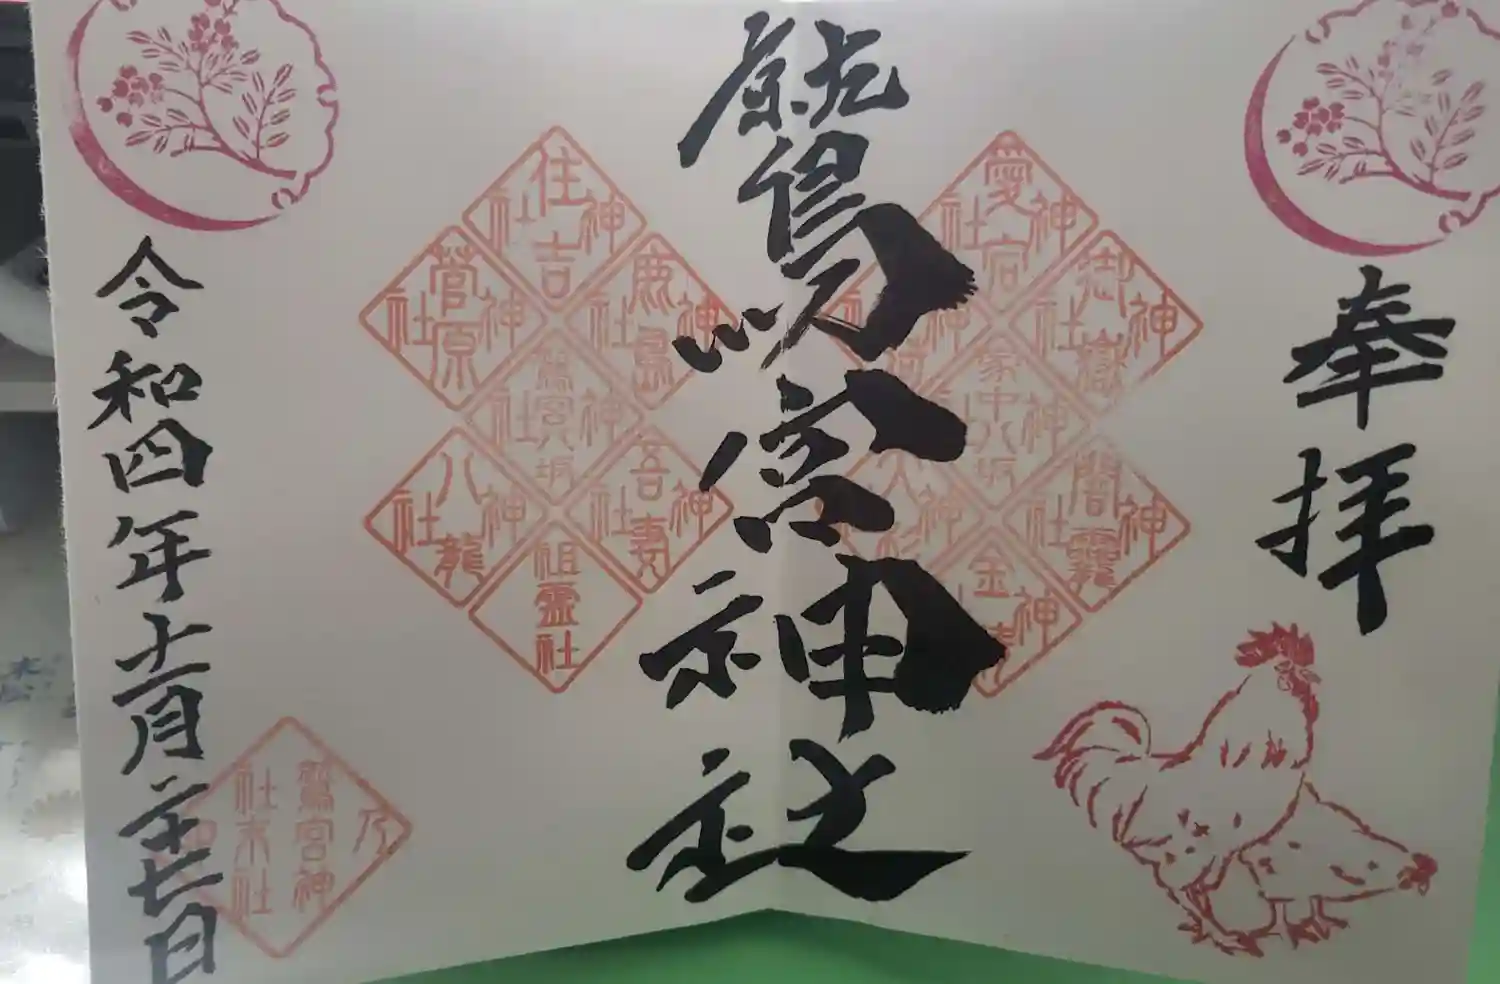 奉拝
鷲宮神社
令和四年十一月二十七日
愛宕神社
御嶽神社
闇龗神社
家中八坂神社
住吉神社
鹿島神社
菅原神社
鷲宮八坂神社
吾妻神社
八龍神社
祖霊社
鷲宮神
社末社